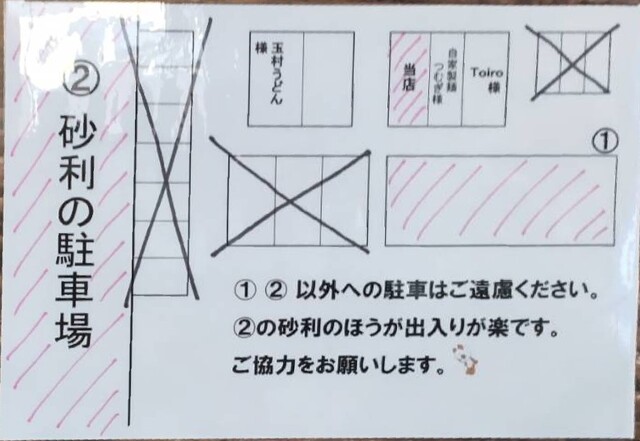 ② 砂利の駐車場
玉村うどん
様
当店
自家製麺
つむぎ様
Toiro
様
①
① ② 以外への駐車はご遠慮ください。
②の砂利のほうが出入りが楽です。
ご協力をお願いします。